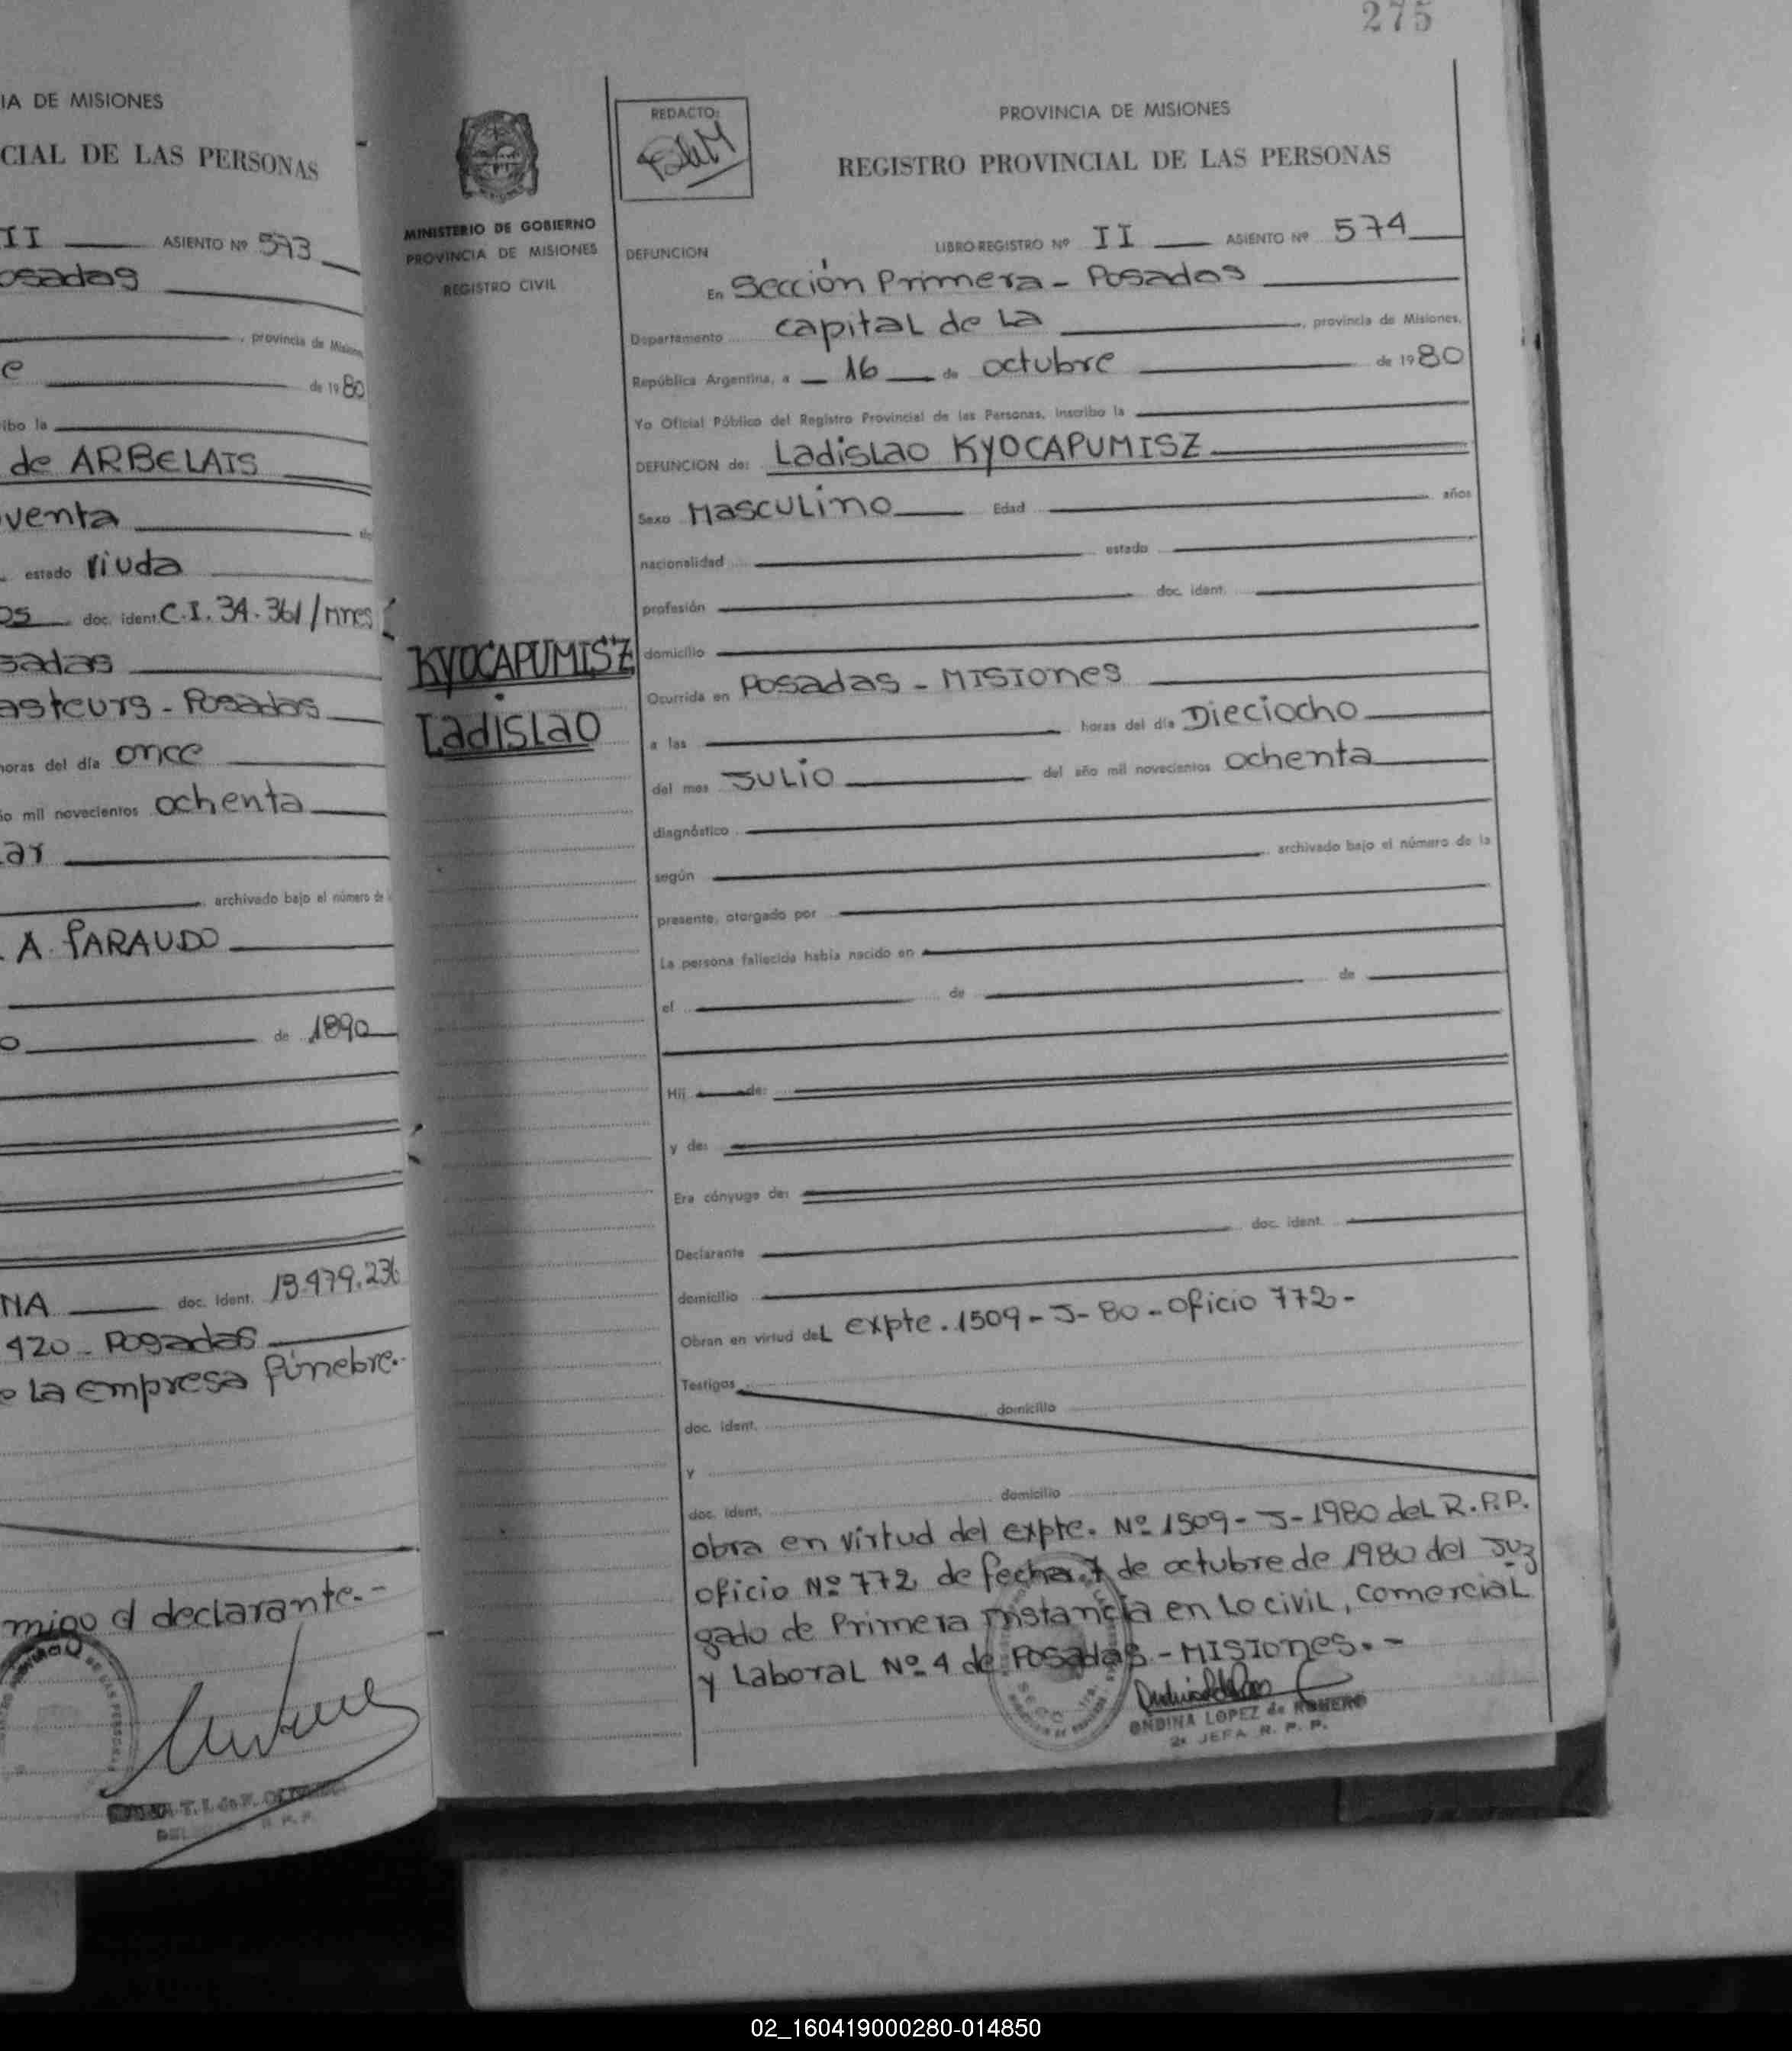 IA DE MISIONES
CIAL DE LAS PERSONAS
II ASIENTO Nº 573
osadas
, provincia de Misiones,
e de 19 80
ibo la
de ARBELAIS
venta
estado viuda
os doc. ident. C.I. 34.361/mnes
sadas
asteurs - Posadas
horas del día once
ño mil novecientos ochenta
lar
archivado bajo el número de
. A. PARAUDO
o de 1890
NA doc. ident. 13.479.236
420 - Posadas
e la empresa fúnebre.-
migo el declarante.-
275
MINISTERIO DE GOBIERNO
PROVINCIA DE MISIONES
REGISTRO CIVIL
KYOCAPUMISZ
Ladislao
REDACTO:
PROVINCIA DE MISIONES
REGISTRO PROVINCIAL DE LAS PERSONAS
DEFUNCION LIBRO-REGISTRO Nº II ASIENTO Nº 574
En Sección Primera - Posadas
Departamento capital de la , provincia de Misiones,
República Argentina, a 16 de octubre de 19 80
Yo Oficial Público del Registro Provincial de las Personas, inscribo la
DEFUNCION de: Ladislao KYOCAPUMISZ
Sexo Masculino Edad años
nacionalidad estado
profesión doc. ident.
domicilio
Ocurrida en Posadas - Misiones
a las horas del día Dieciocho
del mes Julio del año mil novecientos ochenta
diagnóstico
según archivado bajo el número de la
presente, otorgado por
La persona fallecida había nacido en
el de de
Hij de:
y de:
Era cónyuge de:
Declarante doc. ident.
domicilio
Obran en virtud del expte. 1509 - J - 80 - oficio 772 -
Testigos
doc. ident. domicilio
y
doc. ident. domicilio
obra en virtud del expte. Nº 1509 - J - 1980 del R.P.P.
oficio Nº 772 de fecha 7 de octubre de 1980 del Juz
gado de Primera Instancia en lo civil, comercial
y Laboral Nº 4 de Posadas - Misiones. -
ONDINA LOPEZ de ROMERO
2ª JEFA R. P. P.
02_160419000280-014850